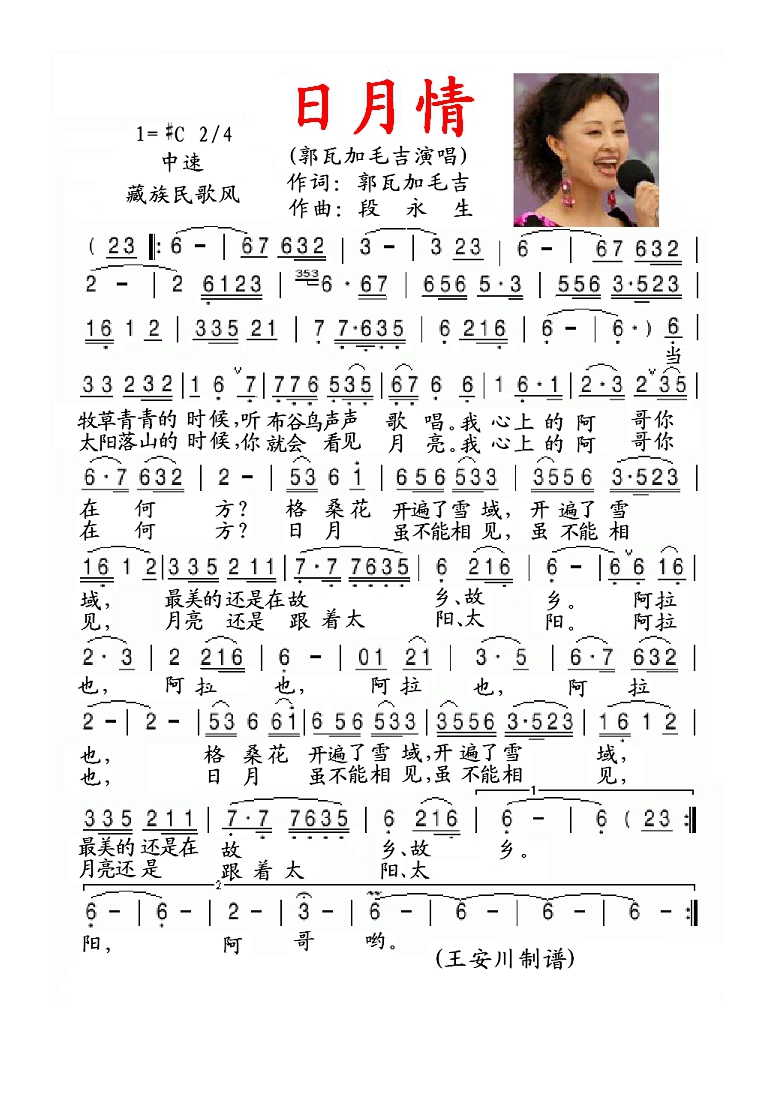 日月情
1=#C 2/4
(郭瓦加毛吉演唱)
中速
作词：郭瓦加毛吉
藏族民歌风
作曲：段 永 生
( 23 ‖: 6 - | 67 632 | 3 - | 3 23 | 6 - | 67 632 |
2 - | 2 6123 | 353 6 · 67 | 656 5·3 | 556 3·523 |
16 1 2 | 335 21 | 7 7·635 | 6 216 | 6 - | 6· ) 6 |
当
33 232 | 1 6 ˅ 7 | 776 535 | 67 6 6 | 1 6·1 | 2·3 2 ˅ 35 |
牧草青青的 时候，听 布谷鸟声声 歌 唱。我 心上的 阿 哥你
太阳落山的 时候，你 就会 看见 月 亮。我 心上的 阿 哥你
6·7 632 | 2 - | 53 6 1 | 656 533 | 3556 3·523 |
在 何 方？ 格 桑花 开遍了雪 域，开 遍了 雪
在 何 方？ 日 月 虽不能相 见，虽 不能 相
16 1 2 | 335 211 | 7·7 7635 | 6 216 | 6 - | 6 ˅ 6 16 |
域， 最美的还是在故 乡、故 乡。 阿拉
见， 月亮 还是 跟 着太 阳、太 阳。 阿拉
2· 3 | 2 216 | 6 - | 01 21 | 3· 5 | 6·7 632 |
也， 阿 拉 也， 阿 拉 也， 阿 拉
2 - | 2 - | 53 6 61 | 6 56 533 | 3556 3·523 | 16 1 2 |
也， 格 桑花 开遍了雪 域，开 遍了 雪 域，
也， 日 月 虽不能相 见，虽 不能相 见，
1
335 211 | 7·7 7635 | 6 216 | 6 - | 6 ( 23 :‖
最美的 还是在 故 乡、故 乡。
月亮还是 跟 着 太 阳、太
2
6 - | 6 - | 2 - | 3 - | 6 - | 6 - | 6 - | 6 - :‖
阳， 阿 哥 哟。
(王安川制谱)